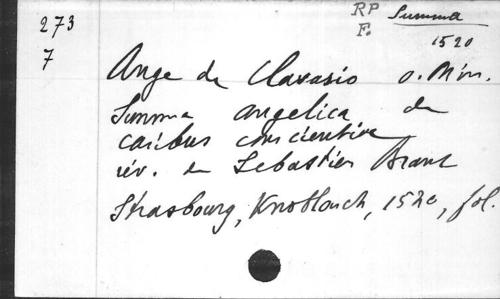 273
7
RP
F.
Summa
1520
Ange de Clavasio o. Min.
Summa angelica de
casibus conscientiae
rév. de Sebastien Brant
Strasbourg, Knoblouch, 1520, fol.